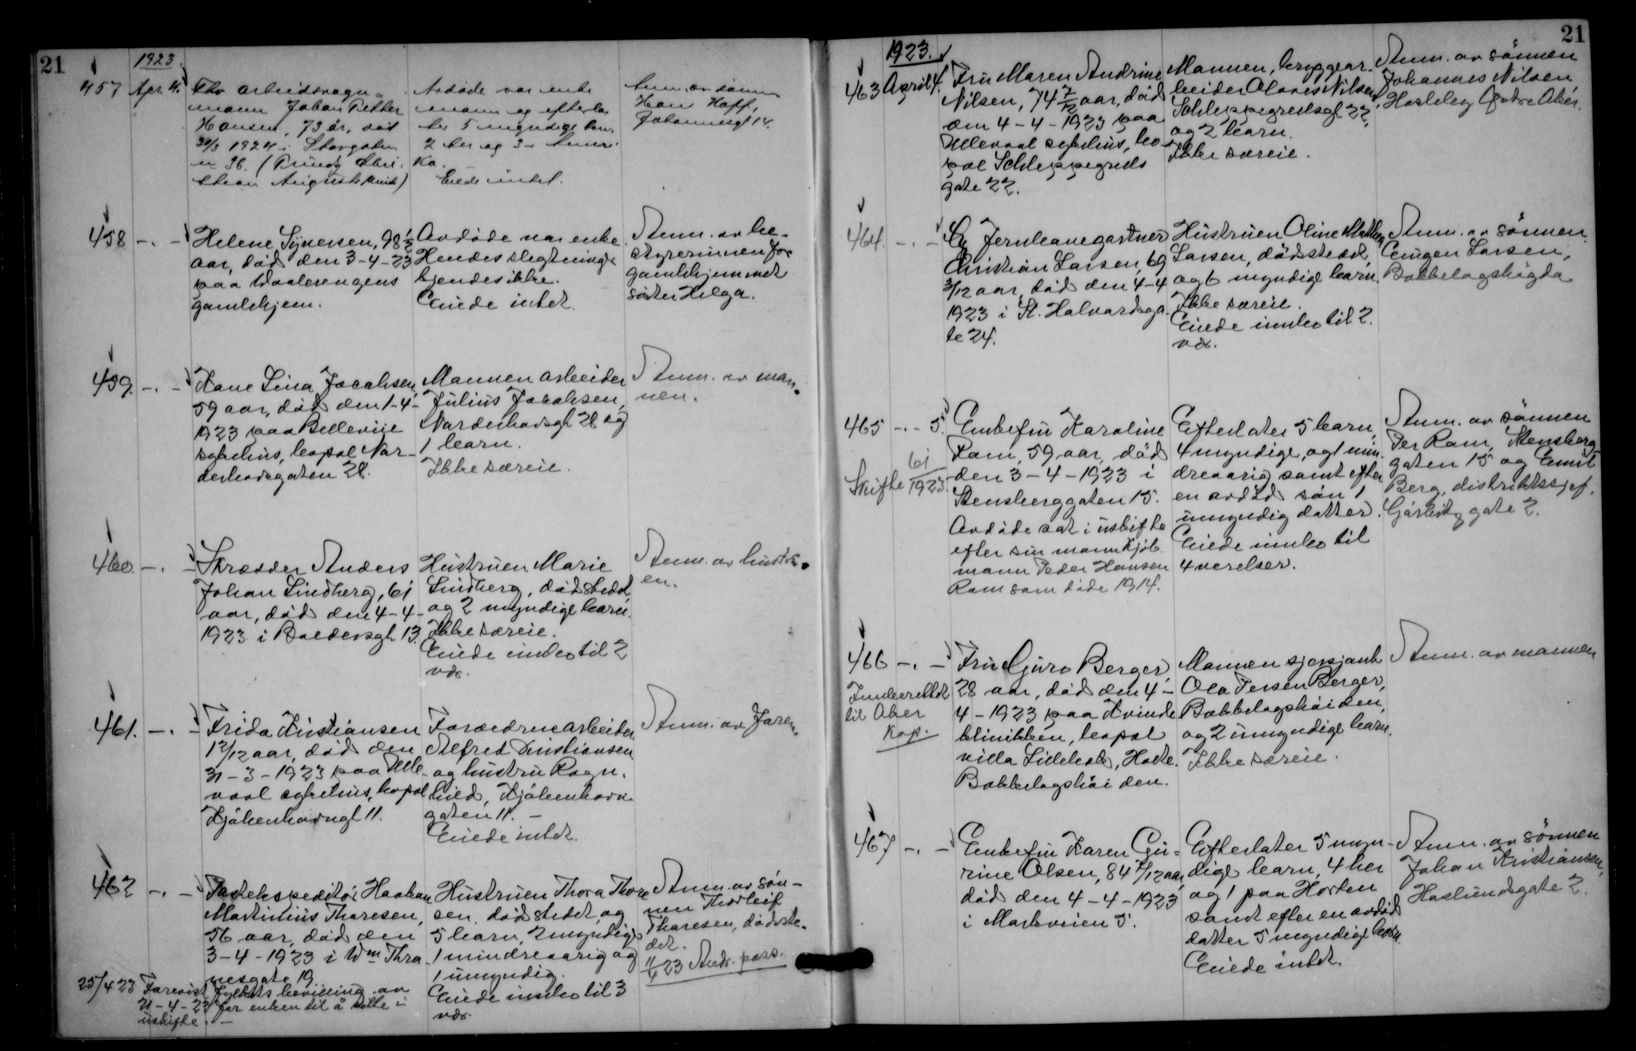 21
1923
457 Apr. 4. Fhv arbeidsvogn-
mann Johan Petter
Hansen, 73 år, død
1924 i Storgaten
36. (Prinds Chri-
stian Augusts Minde)
Avdøde var enke-
mann og efterla-
ter 5 myndige barn
2 her og 3 i Ameri-
ka.
Eiede intet.
Anm. av sønnen
Hans Hoff,
Johannesgt 14.
458 -.- Helene Synersen, 98½
aar, død den 3-4-23
paa Vaalerengens
gamlehjem.
Avdøde var enke.
Hendes slegtninge
kjendes ikke.
Eiede intet.
Anm. av be-
styrerinnen for
gamlehjemmet
søster Helga.
459. -.- Hane Lina Jacobsen,
59 aar, død den 1-4-
1923 paa Bellevue
sykehus, bopæl Nor-
derhovsgaten 28.
Mannen arbeider
Julius Jacobsen,
Norderhovsgt 28 og
1 barn.
Ikke særeie.
Anm. av man-
nen.
460. -.- Skrædder Anders
Johan Lindberg, 61
aar, død den 4-4-
1923 i Baldersgt 13.
Hustruen Marie
Lindberg, dødstedet
og 2 myndige barn.
Ikke særeie.
Eiede innbo til 2
vær.
Anm. av hustru-
en.
461. -.- Frida Kristiansen
1 2/12 aar, død den
31-3-1923 paa Ulle-
vaal sykehus, bopæl
Kjøbenhavngt 11.
Forældrene arbeider
Alfred Kristiansen
og hustru Ragn-
hild, Kjøbenhavn-
gaten 11. -
Eiede intet.
Anm. av faren.
462 -.- Postekspeditør Haakon
Martinius Thoresen,
56 aar, død den
3-4-1923 i Wm Thra-
nesgate 19
Hustruen Thora Thore-
sen, dødstedet, og
5 barn, 2 myndige
1 mindreaarig og
1 umyndig.
Eiede innbo til 3
vær.
Anm. av søn-
nen Thorleif
Thoresen, dødste-
det.
11/4 23 Andr. pass.
25/4 23 Forevist fylkets bevilling av
21-4-23 for enken til å sitte i
uskifte. -
21
1923.
463 April 4. Fru Maren Andrine
Nilsen, 74 7/12 aar, død
den 4-4-1923 paa
Ullevaal sykehus, bo-
pæl Schleppegrells
gate 22.
Mannen, bryggear-
beider Olaves Nilsen,
Schleppegrellsgt 22,
og 2 barn.
Ikke særeie.
Anm. av sønnen
Johannes Nilsen
Aker.
464. -.- Eg Jernbanegartner
Christian Larsen, 69
3/12 aar, død den 4-4
1923 i St. Halvardsga-
te 24.
Hustruen Oline
Larsen, dødstedet,
og 6 myndige barn.
Ikke særeie.
Eiede innbo til 2
vær.
Anm. av sønnen
Eugen Larsen,
Bækkelagshøgda
465 -.- 5. Enkefru Karoline
Ram, 59 aar, død
den 3-4-1923 i
Stensberggaten 15.
Avdøde sat i uskifte
efter sin mann kjøb-
mann Peder Hansen
Ram som døde 1914.
Skifte 61/1923.
Efterlater 5 barn,
4 myndige, og 1 min-
dreaarig samt efter
en avdød søn 1
umyndig datter.
Eiede innbo til
4 værelser.
Anm. av sønnen
Per Ram, Stensberg-
gaten 15 og Emil
Berg, distriktssjef,
gate 2.
466 -.- Fru Guro Berger,
28 aar, død den 4-
4-1923 paa Kvinde-
klinikken, bopæl
villa Lillebo, Hovte
Bækkelagshøiden.
Innberettet
til Aker
Kop.
Mannen sjersjant
Ola Persen Berger,
Bækkelagshøiden,
og 2 umyndige barn.
Ikke særeie.
Anm. av mannen
467 -.- Enkefru Karen Gu-
rine Olsen, 84 7/12 aar,
død den 4-4-1923
i Markveien 5.
Efterlater 5 myn-
dige barn, 4 her
og 1 paa Horten
samt efter en avdød
datter 5 myndige barn
Eiede intet.
Anm. av sønnen
Johan Kristiansen,
Haslundsgate 2.